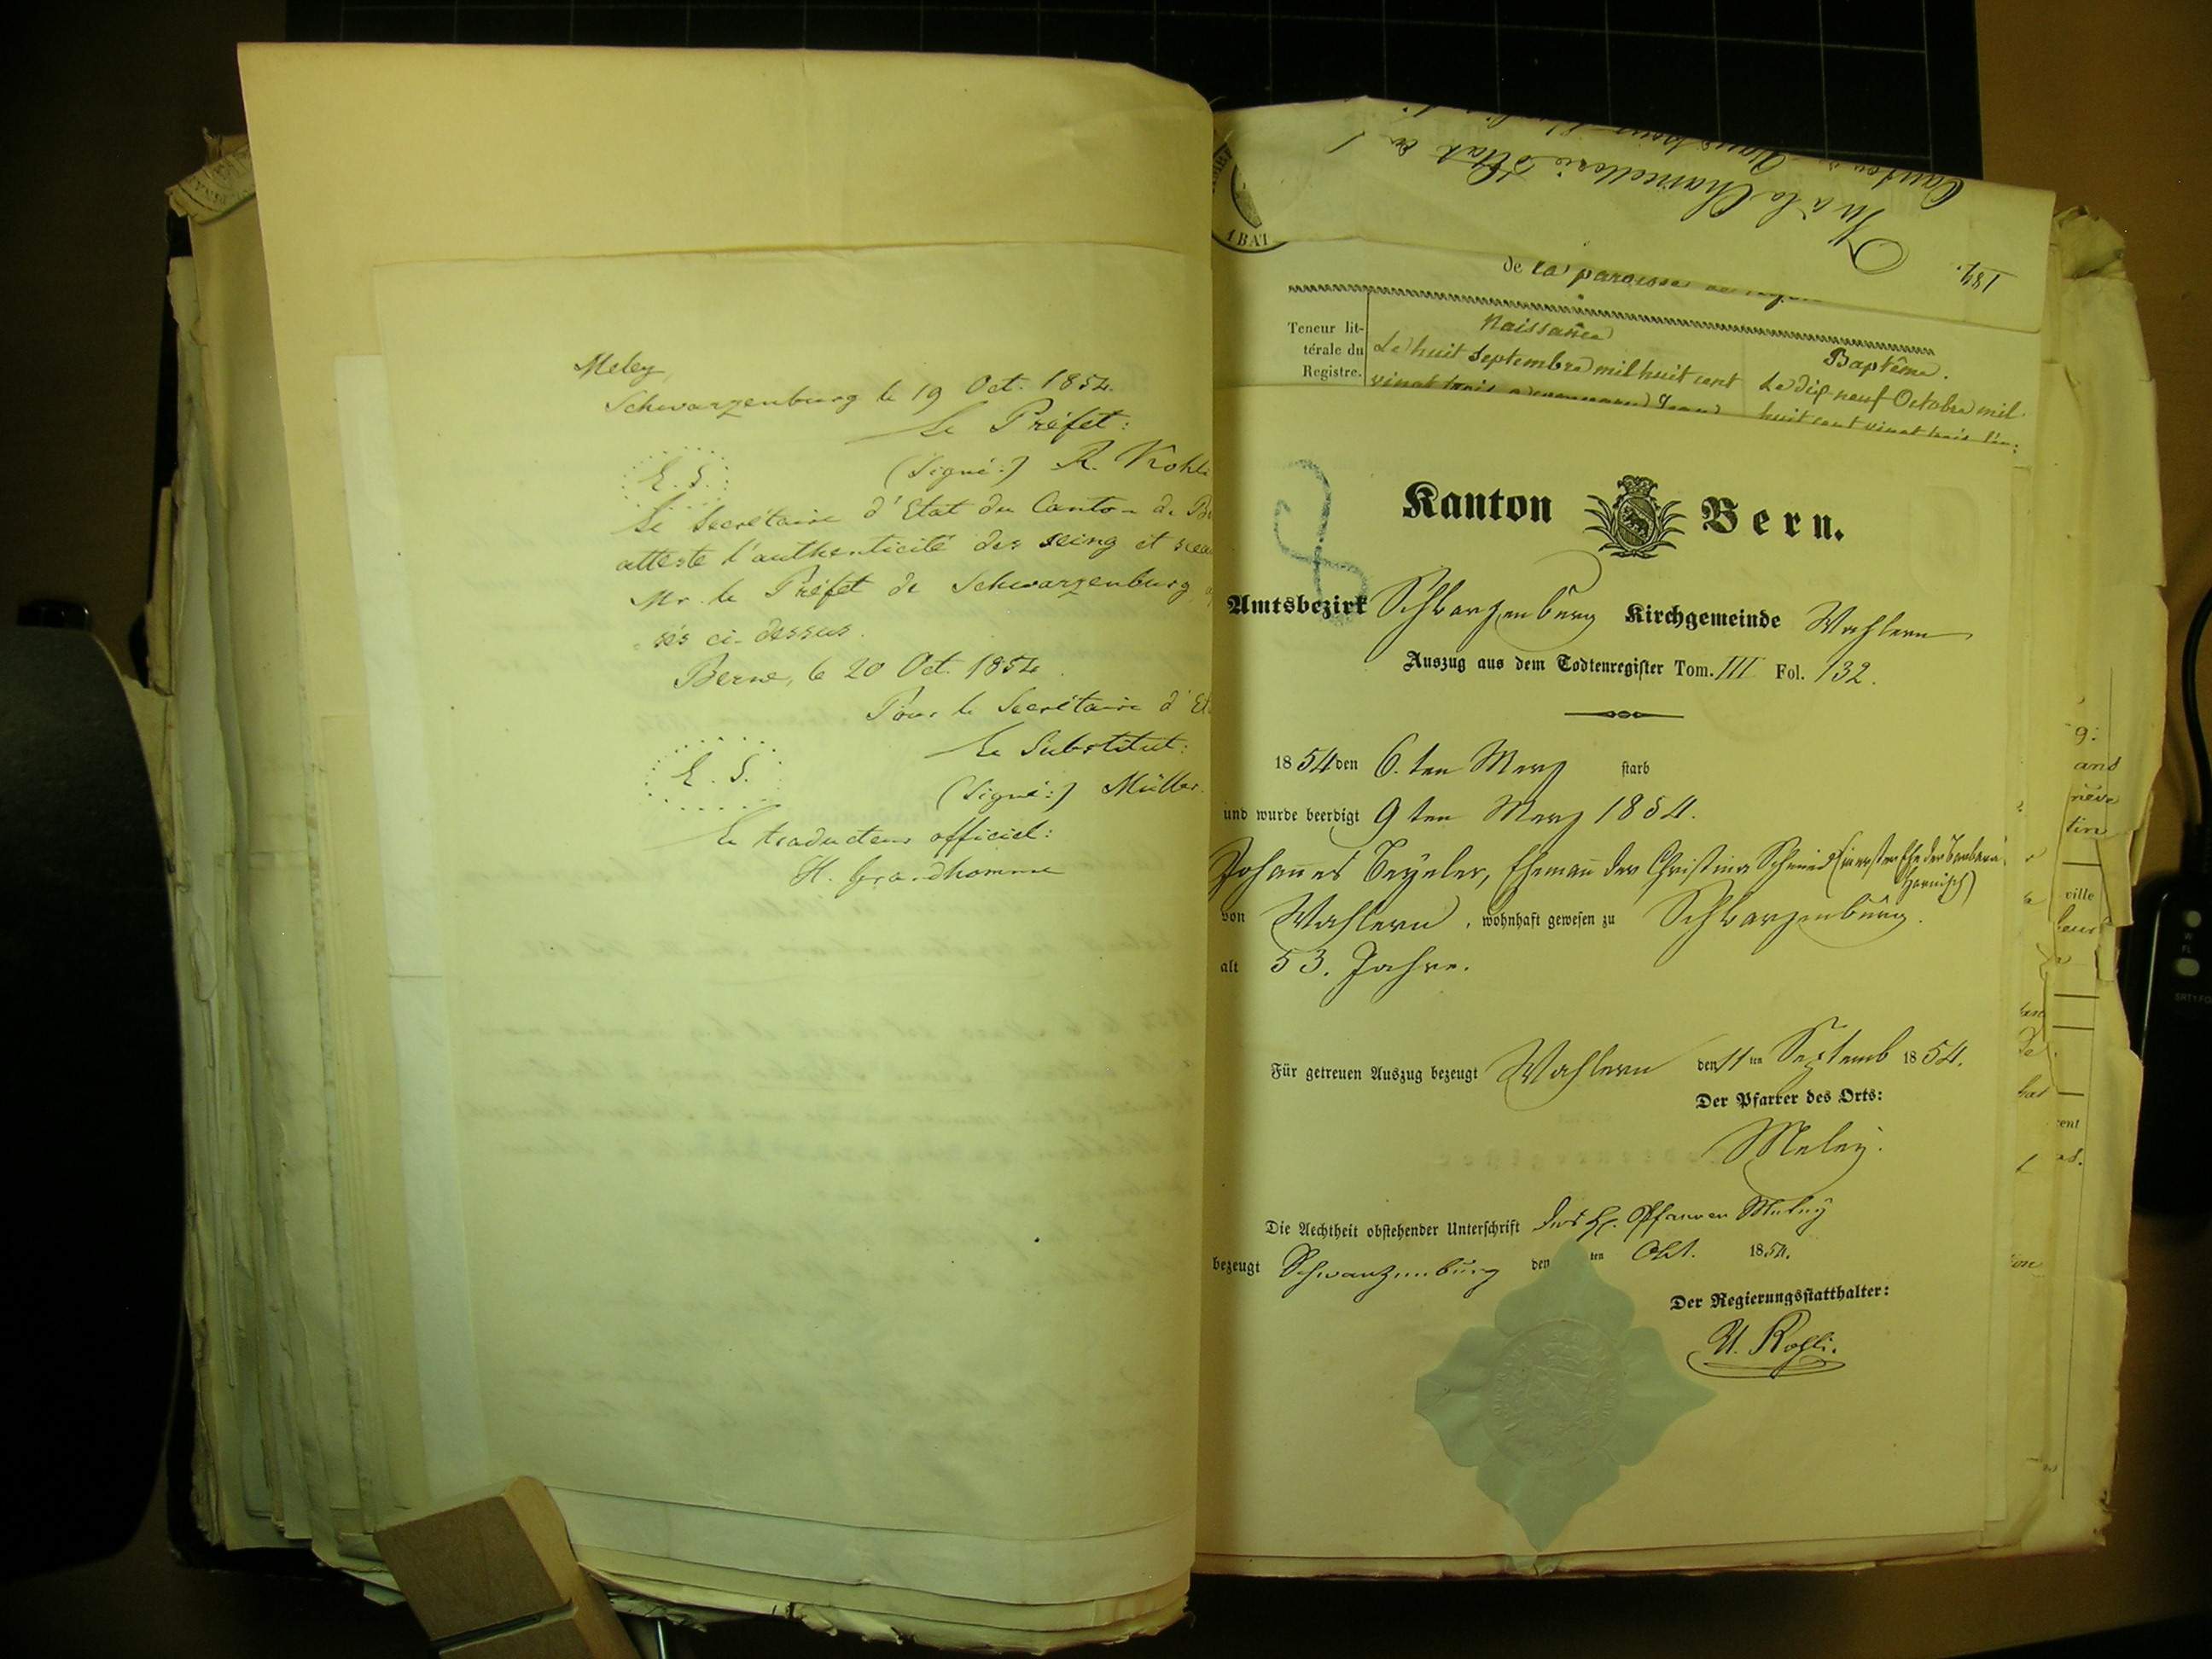 Meley,
Schwarzenburg le 19 Oct. 1854.
Le Préfet:
(Signé:) R. Kohli
L. S.
Le Secrétaire d'Etat du Canton de Be
atteste l'authenticité des seing et scea
Mr. le Préfet de Schwarzenburg
sés ci-dessus.
Berne, le 20 Oct. 1854.
Pour le Secrétaire d'Et
Le Substitut:
L. S.
(Signé:) Müller.
Le traducteur officiel:
H. Grandhomme
Vu à la Chancellerie d'Etat du
Canton
184
1 BAT
de la paroisse de
Teneur lit-
térale du
Registre.
Naissance
Le huit Septembre mil huit cent
vingt trois
Baptême.
Le dix neuf Octobre mil
huit cent vingt trois
Kanton Bern.
Amtsbezirk Schwarzenburg Kirchgemeinde Wahlern
Auszug aus dem Todtenregister Tom. III Fol. 132.
1854 den 6.ten Merz starb
und wurde beerdigt 9ten Merz 1854.
Johannes Beyeler, Ehemann der Christina Schmid (in erster Ehe der Barbara
Harnisch)
von Wahlern, wohnhaft gewesen zu Schwarzenburg.
alt 53. Jahre.
Für getreuen Auszug bezeugt Wahlern den 11ten Septemb 1854.
Der Pfarrer des Orts:
Meley.
Die Aechtheit obstehender Unterschrift des H. Pfarrer Meley
bezeugt Schwarzenburg den ten Okt. 1854.
Der Regierungsstatthalter:
R. Kohli.